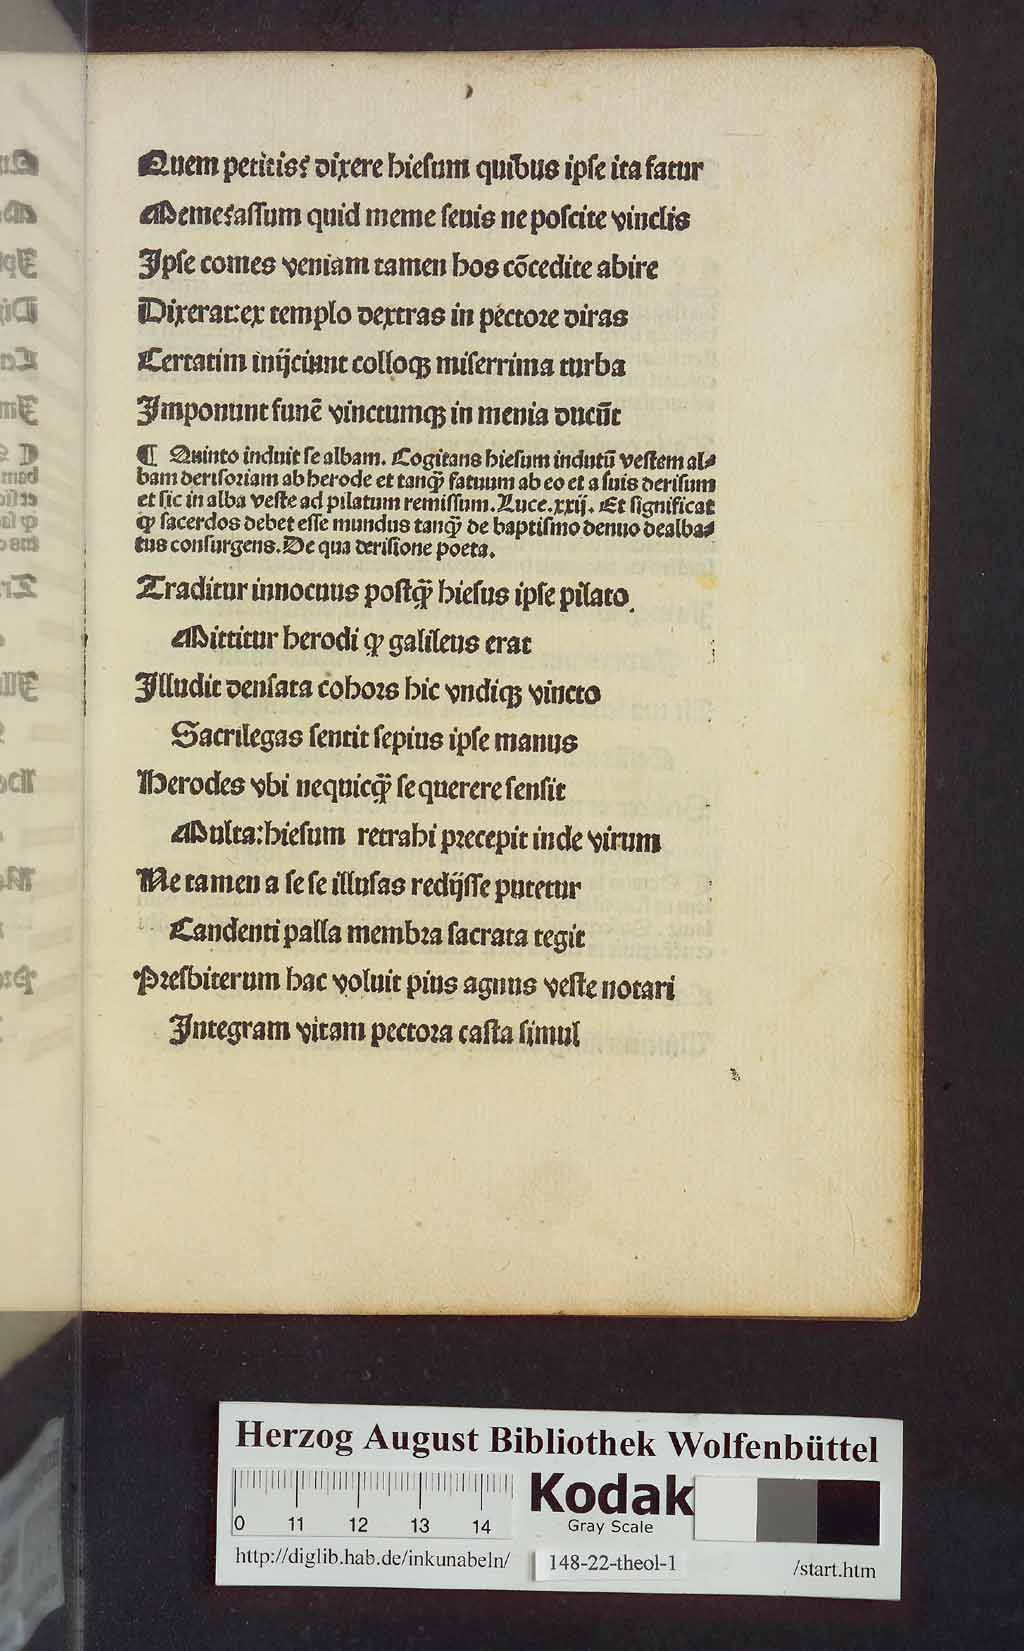 Quem petitis? dixere hiesum quibus ipse ita fatur
Meme?assum quid meme seuis ne poscite vinclis
Ipse comes veniam tamen hos cõcedite abire
Dixerat:ex templo dextras in pectore diras
Certatim inijciunt colloqꝫ miserrima turba
Imponunt funẽ vinctumqꝫ in menia ducũt
¶ Quinto induit se albam. Cogitans hiesum indutũ vestem al⸗
bam derisoriam ab herode et tanqꝫ̃ fatuum ab eo et a suis derisum
et sic in alba veste ad pilatum remissum. Luce.xxij. Et significat
ꝙ sacerdos debet esse mundus tanqꝫ̃ de baptismo denuo dealba⸗
tus consurgens. De qua derisione poeta.
Traditur innocuus postqꝫ̃ hiesus ipse pilato
Mittitur herodi ꝙ galileus erat
Illudit densata cohors hic vndiqꝫ vincto
Sacrilegas sentit sepius ipse manus
Herodes vbi nequicqꝫ̃ se querere sensit
Multa:hiesum retrahi precepit inde virum
Ne tamen a se se illusas redijsse putetur
Candenti palla membra sacrata tegit
Presbiterum hac voluit pius agnus veste notari
Integram vitam pectora casta simul
Herzog August Bibliothek Wolfenbüttel
0 11 12 13 14
Kodak
Gray Scale
http://diglib.hab.de/inkunabeln/ 148-22-theol-1 /start.htm